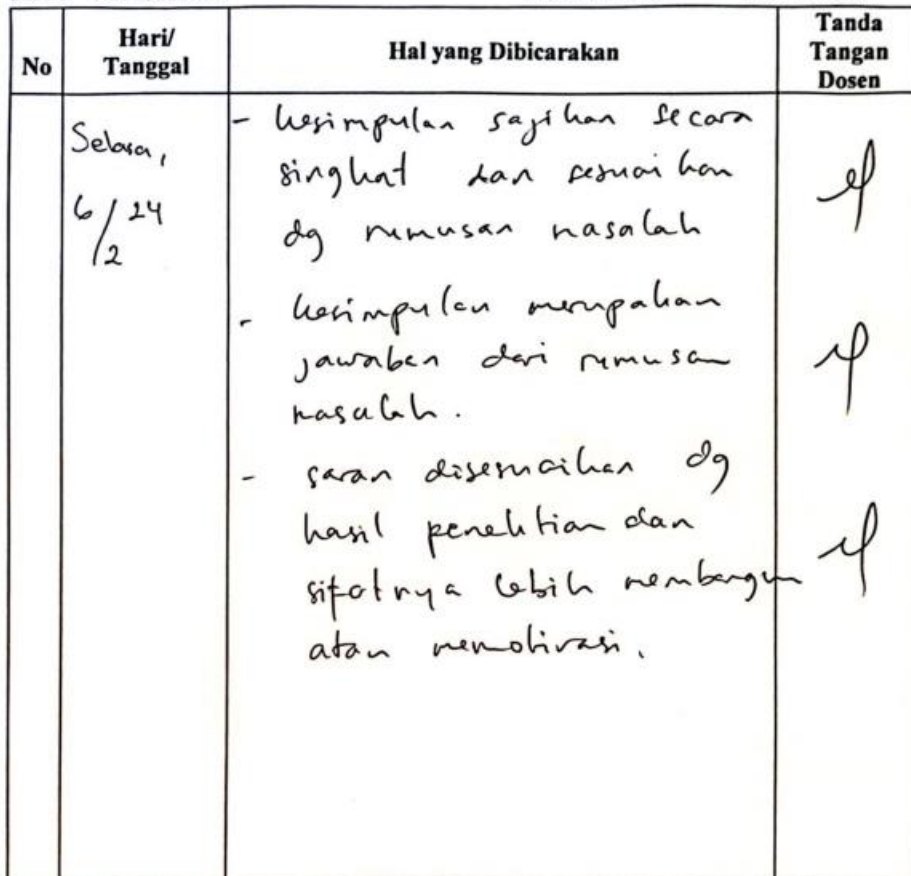 No
Hari/
Tanggal
Hal yang Dibicarakan
Tanda
Tangan
Dosen
Selasa,
6/2 24
- kesimpulan sajikan secara
singkat dan sesuaikan
dg rumusan masalah
- kesimpulan merupakan
jawaban dari rumusan
masalah.
- saran disesuaikan dg
hasil penelitian dan
sifatnya lebih membangun
atau memotivasi.